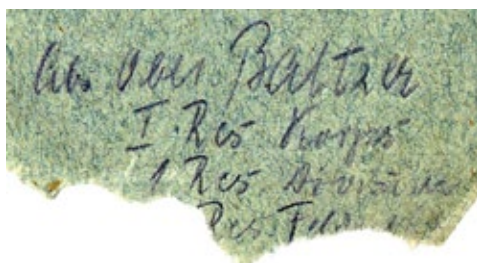 Abs. Ober. Baltzer
I. Res. Korps
1 Res. Division
Res. Feld